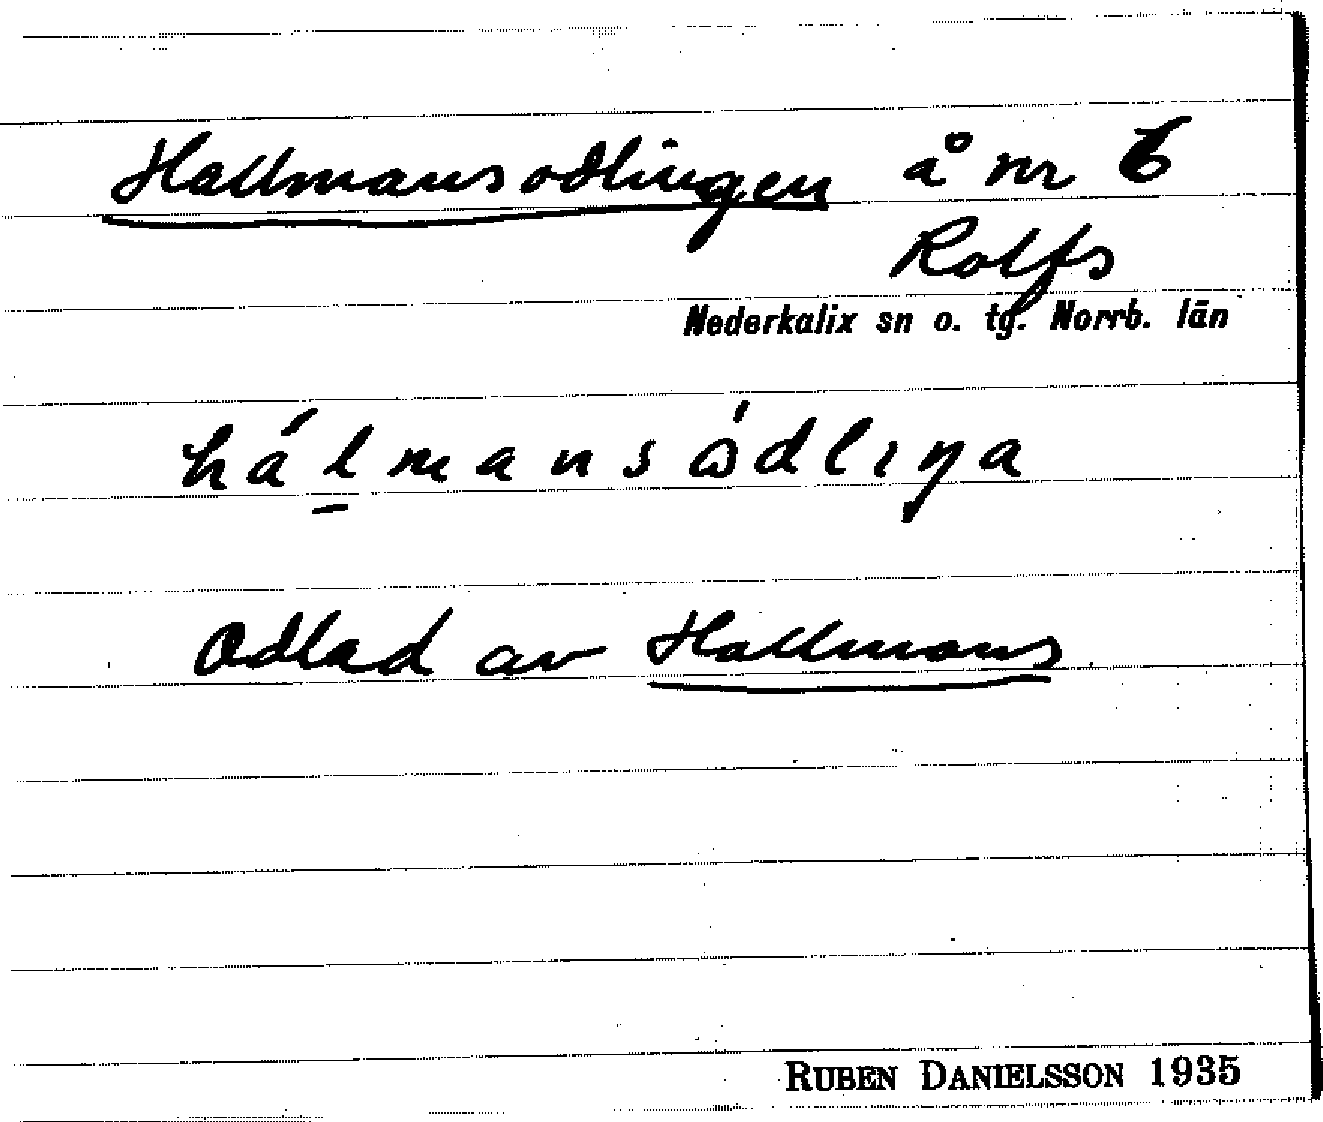 Hallmansodlingen å nr 6
Rolfs
Nederkalix sn o. tg. Norrb. län
há̱lmansɷ́dlıŋa
Odlad av Hallmans.
RUBEN DANIELSSON 1935